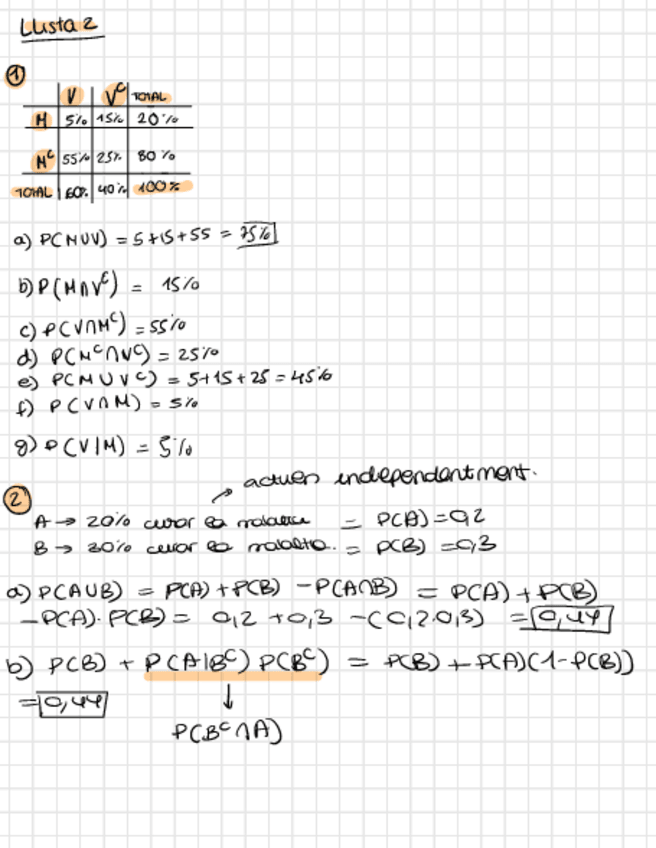 Llista 2
①
V V^C TOTAL
M 5% 15% 20%
M^C 55% 25% 80%
TOTAL 60% 40% 100%
a) P(MUV) = 5+15+55 = 75%
b) P(M∩V^C) = 15%
c) P(V∩M^C) = 55%
d) P(M^C∩V^C) = 25%
e) P(M∪V^C) = 5+15+25 = 45%
f) P(V∩M) = 5%
g) P(V|M) = 5%
② actuen independentment.
A → 20% curar la malaltia = P(A)=0,2
B → 30% curar la malaltia. = P(B) =0,3
a) P(AUB) = P(A)+P(B) -P(A∩B) = P(A)+P(B)
-P(A)·P(B) = 0,2 +0,3 -(0,2·0,3) = 0,44
b) P(B) + P(A|B^C) P(B^C) = P(B)+P(A)(1-P(B))
= 0,44 ↓
P(B^C∩A)